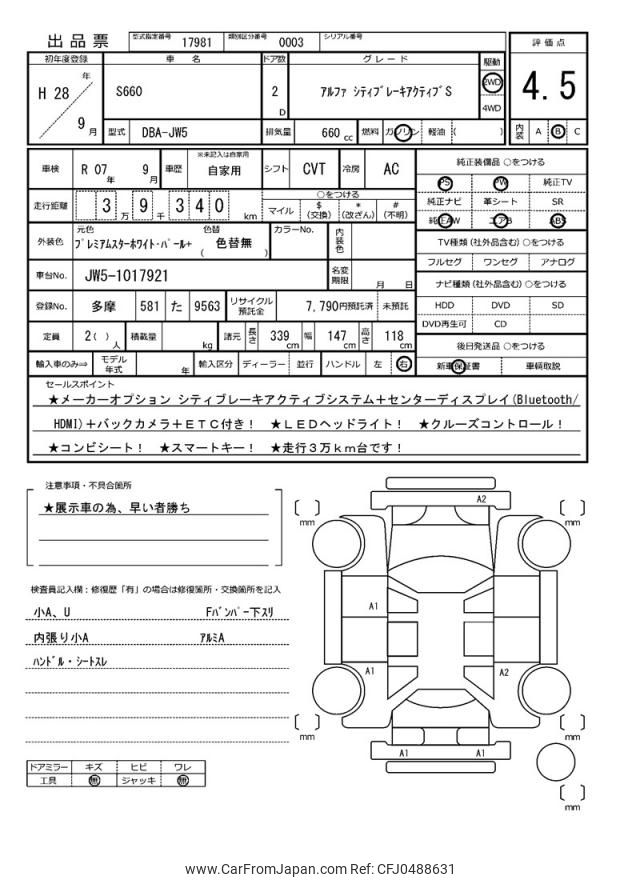 出品票 型式指定番号 17981 類別区分番号 0003 シリアル番号
初年度登録 車名 ドア数 グレード 駆動 評価点
H 28 年 9 月 S660 2 D アルファ シティブレーキアクティブS 2WD 4WD 4.5
型式 DBA-JW5 排気量 660 cc 燃料 ガソリン 軽油 ( ) 内装 A B C
車検 R 07 年 9 月 車歴 ※未記入は自家用 自家用 シフト CVT 冷房 AC 純正装備品 ○をつける
PS PW 純正TV
走行距離 3 万 9 千 3 4 0 km ○をつける 純正ナビ 革シート SR
マイル $ (交換) * (改ざん) # (不明) 純正AW エアB ABS
外装色 元色 プレミアムスターホワイト・パール+ 色替 ( 色替無 ) カラーNo. 内装色 TV種類 (社外品含む) ○をつける
フルセグ ワンセグ アナログ
車台No. JW5-1017921 名変期限 月 日 ナビ種類 (社外品含む) ○をつける
登録No. 多摩 581 た 9563 リサイクル預託金 7,790円預託済 未預託 HDD DVD SD
DVD再生可 CD
定員 2( ) 人 積載量 kg 諸元 長さ 339 cm 幅 147 cm 高さ 118 cm 後日発送品 ○をつける
輸入車のみ⇒ モデル年式 年 輸入区分 ディーラー 並行 ハンドル 左 右 新車保証書 車輌取説
セールスポイント
★メーカーオプション シティブレーキアクティブシステム+センターディスプレイ(Bluetooth/
HDMI)+バックカメラ+ETC付き! ★LEDヘッドライト! ★クルーズコントロール!
★コンビシート! ★スマートキー! ★走行3万km台です!
注意事項・不具合箇所
★展示車の為、早い者勝ち
検査員記入欄:修復歴「有」の場合は修復箇所・交換箇所を記入
小A、U Fバンパー下スリ
内張り小A アルミA
ハンドル・シートスレ
ドアミラー キズ ヒビ ワレ
工具 無 ジャッキ 無
A2
mm mm
A1
A1 A2
mm mm
A1 A1
mm
www.CarFromJapan.com Ref: CFJ0488631